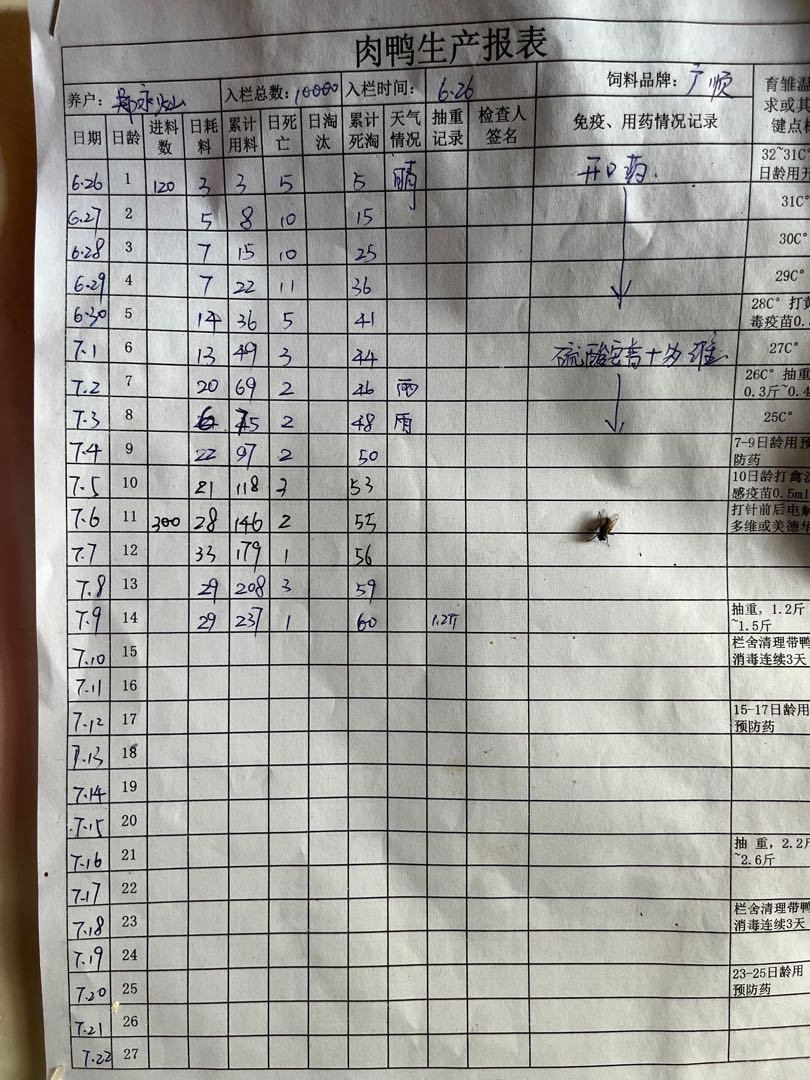 肉鸭生产报表
养户： 入栏总数：10000 入栏时间： 6.26 饲料品牌：广顺 育雏温
求或其
键点
日期 日龄 进料数 日耗料 累计用料 日死亡 日淘汰 累计死淘 天气情况 抽重记录 检查人签名 免疫、用药情况记录
6.26 1 120 3 3 5 5 晴 开口药. 32~31C°
日龄用开
6.27 2 5 8 10 15 31C°
6.28 3 7 15 10 25 30C°
6.29 4 7 22 11 36 29C°
6.30 5 14 36 5 41 28C° 打黄
毒疫苗0.
7.1 6 13 49 3 44 硫酸 + 多维 27C°
7.2 7 20 69 2 46 雨 26C° 抽重
0.3斤~0.4
7.3 8 6 75 2 48 雨 25C°
7.4 9 22 97 2 50 7-9日龄用预
防药
7.5 10 21 118 3 53 10日龄打禽流
感疫苗0.5ml
7.6 11 300 28 146 2 55 打针前后电解
多维或美德华
7.7 12 33 179 1 56
7.8 13 29 208 3 59
7.9 14 29 237 1 60 1.2斤 抽重，1.2斤
~1.5斤
7.10 15 栏舍清理带鸭
消毒连续3天
7.11 16
7.12 17 15-17日龄用
预防药
7.13 18
7.14 19
7.15 20
7.16 21 抽 重，2.2斤
~2.6斤
7.17 22
7.18 23 栏舍清理带鸭
消毒连续3天
7.19 24
7.20 25 23-25日龄用
预防药
7.21 26
7.22 27